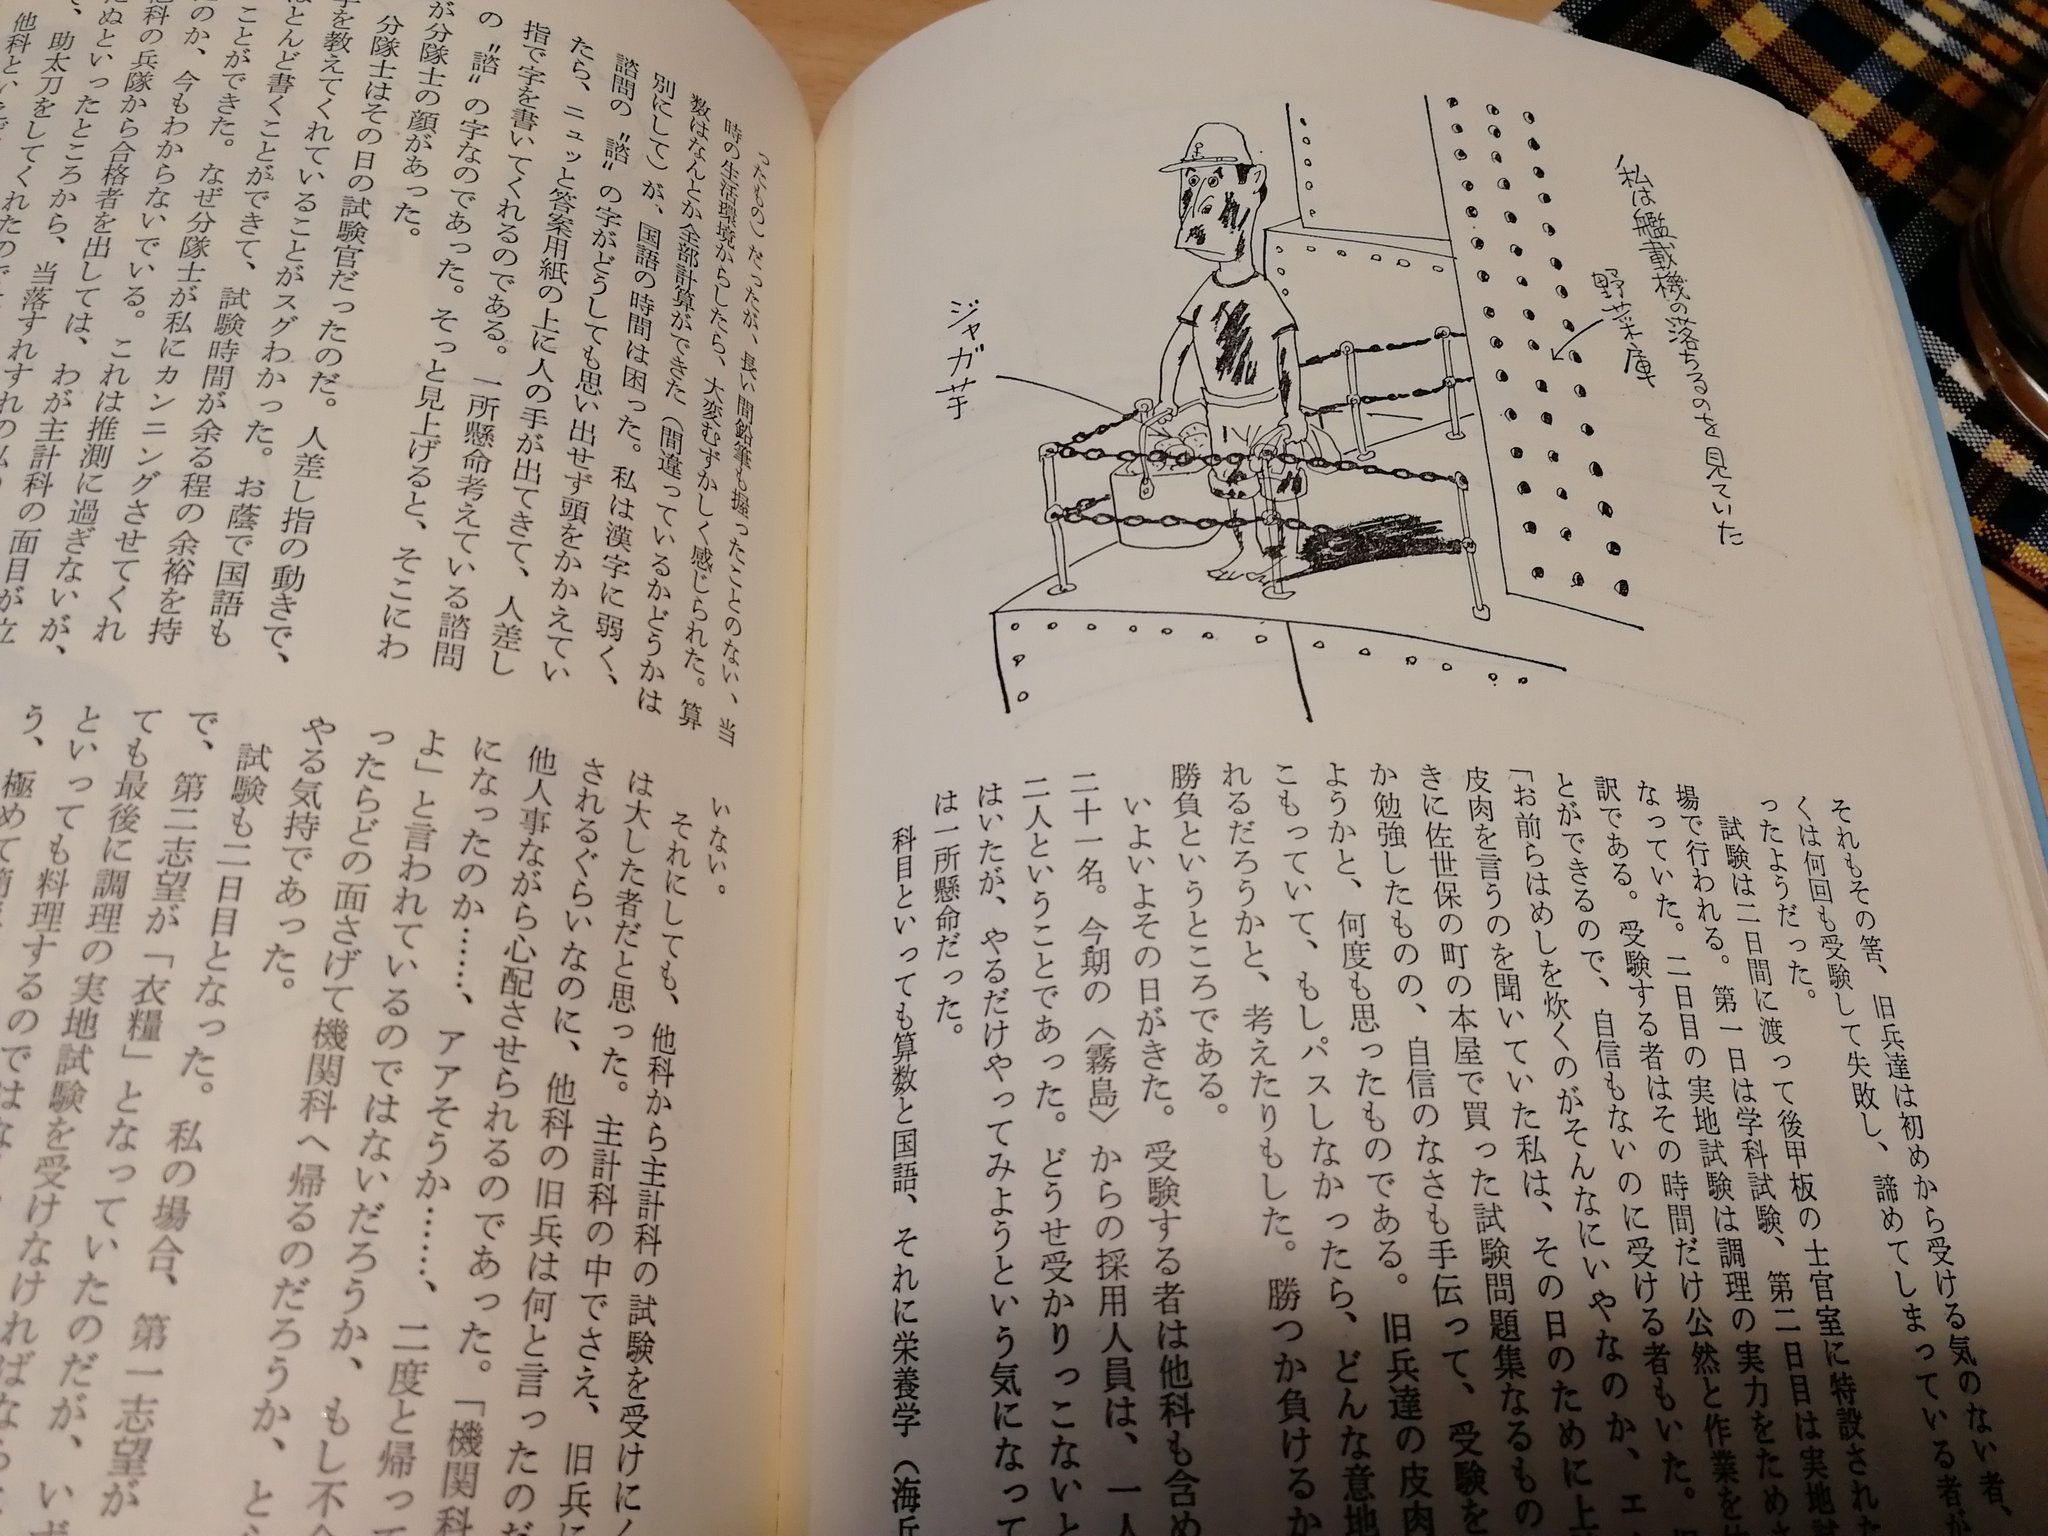 私は艦載機の落ちるのを見ていた
野菜庫
ジャガ芋
それもその筈、旧兵達は初めから受ける気のない者、
くは何回も受験して失敗し、諦めてしまっている者が
ったようだった。
試験は二日間に渡って後甲板の士官室に特設された
場で行われる。第一日は学科試験、第二日目は実地試
なっていた。二日目の実地試験は調理の実力をためさ
訳である。受験する者はその時間だけ公然と作業を
とができるので、自信もないのに受ける者もいた。
「お前らはめしを炊くのがそんなにいやなのか、エ
皮肉を言うのを聞いていた私は、その日のために上
きに佐世保の町の本屋で買った試験問題集なるもの
か勉強したものの、自信のなさも手伝って、受験を
ようかと、何度も思ったものである。旧兵達の皮肉
こもっていて、もしパスしなかったら、どんな意地
れるだろうかと、考えたりもした。勝つか負けるか
勝負というところである。
いよいよその日がきた。受験する者は他科も含め
二十一名。今期の〈霧島〉からの採用人員は、一人
二人ということであった。どうせ受かりっこないと
はいたが、やるだけやってみようという気になって
は一所懸命だった。
科目といっても算数と国語、それに栄養学（海兵
ったもの）だったが、長い間鉛筆も握ったことのない、当
時の生活環境からしたら、大変むずかしく感じられた。算
数はなんとか全部計算ができた（間違っているかどうかは
別にして）が、国語の時間は困った。私は漢字に弱く、
諮問の〝諮〟の字がどうしても思い出せず頭をかかえてい
たら、ニュッと答案用紙の上に人の手が出てきて、人差し
指で字を書いてくれるのである。一所懸命考えている諮問
の〝諮〟の字なのであった。そっと見上げると、そこにわ
が分隊士の顔があった。
分隊士はその日の試験官だったのだ。人差し指の動きで、
字を教えてくれていることがスグわかった。お蔭で国語も
ほとんど書くことができて、試験時間が余る程の余裕を持
ことができた。なぜ分隊士が私にカンニングさせてくれ
たのか、今もわからないでいる。これは推測に過ぎないが、
他科の兵隊から合格者を出しては、わが主計科の面目が立
たぬといったところから、当落すれすれの私
、助太刀をしてくれたので
いない。
それにしても、他科から主計科の試験を受けにく
は大した者だと思った。主計科の中でさえ、旧兵に
されるぐらいなのに、他科の旧兵は何と言ったのだ
他人事ながら心配させられるのであった。「機関科
になったのか……、アアそうか……、二度と帰って
よ」と言われているのではないだろうか、もし不合
ったらどの面さげて機関科へ帰るのだろうか、と
やる気持であった。
試験も二日目となった。私の場合、第一志望が
で、第二志望が「衣糧」となっていたのだが、いず
ても最後に調理の実地試験を受けなければなら
といっても料理するのではな
う、極めて簡